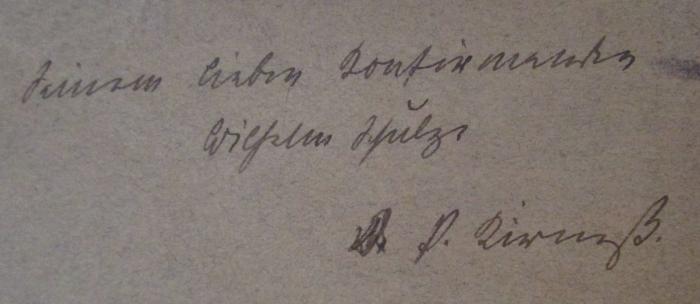 Seinem lieben Konfirmanden
Wilhelm Schulze
P. Kirmß.